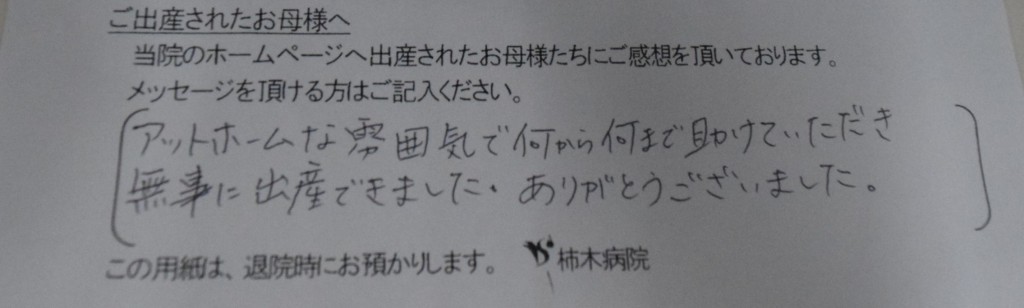 ご出産されたお母様へ
当院のホームページへ出産されたお母様たちにご感想を頂いております。
メッセージを頂ける方はご記入ください。
アットホームな雰囲気で何から何まで助けていただき
無事に出産できました。ありがとうございました。
この用紙は、退院時にお預かりします。 柿木病院